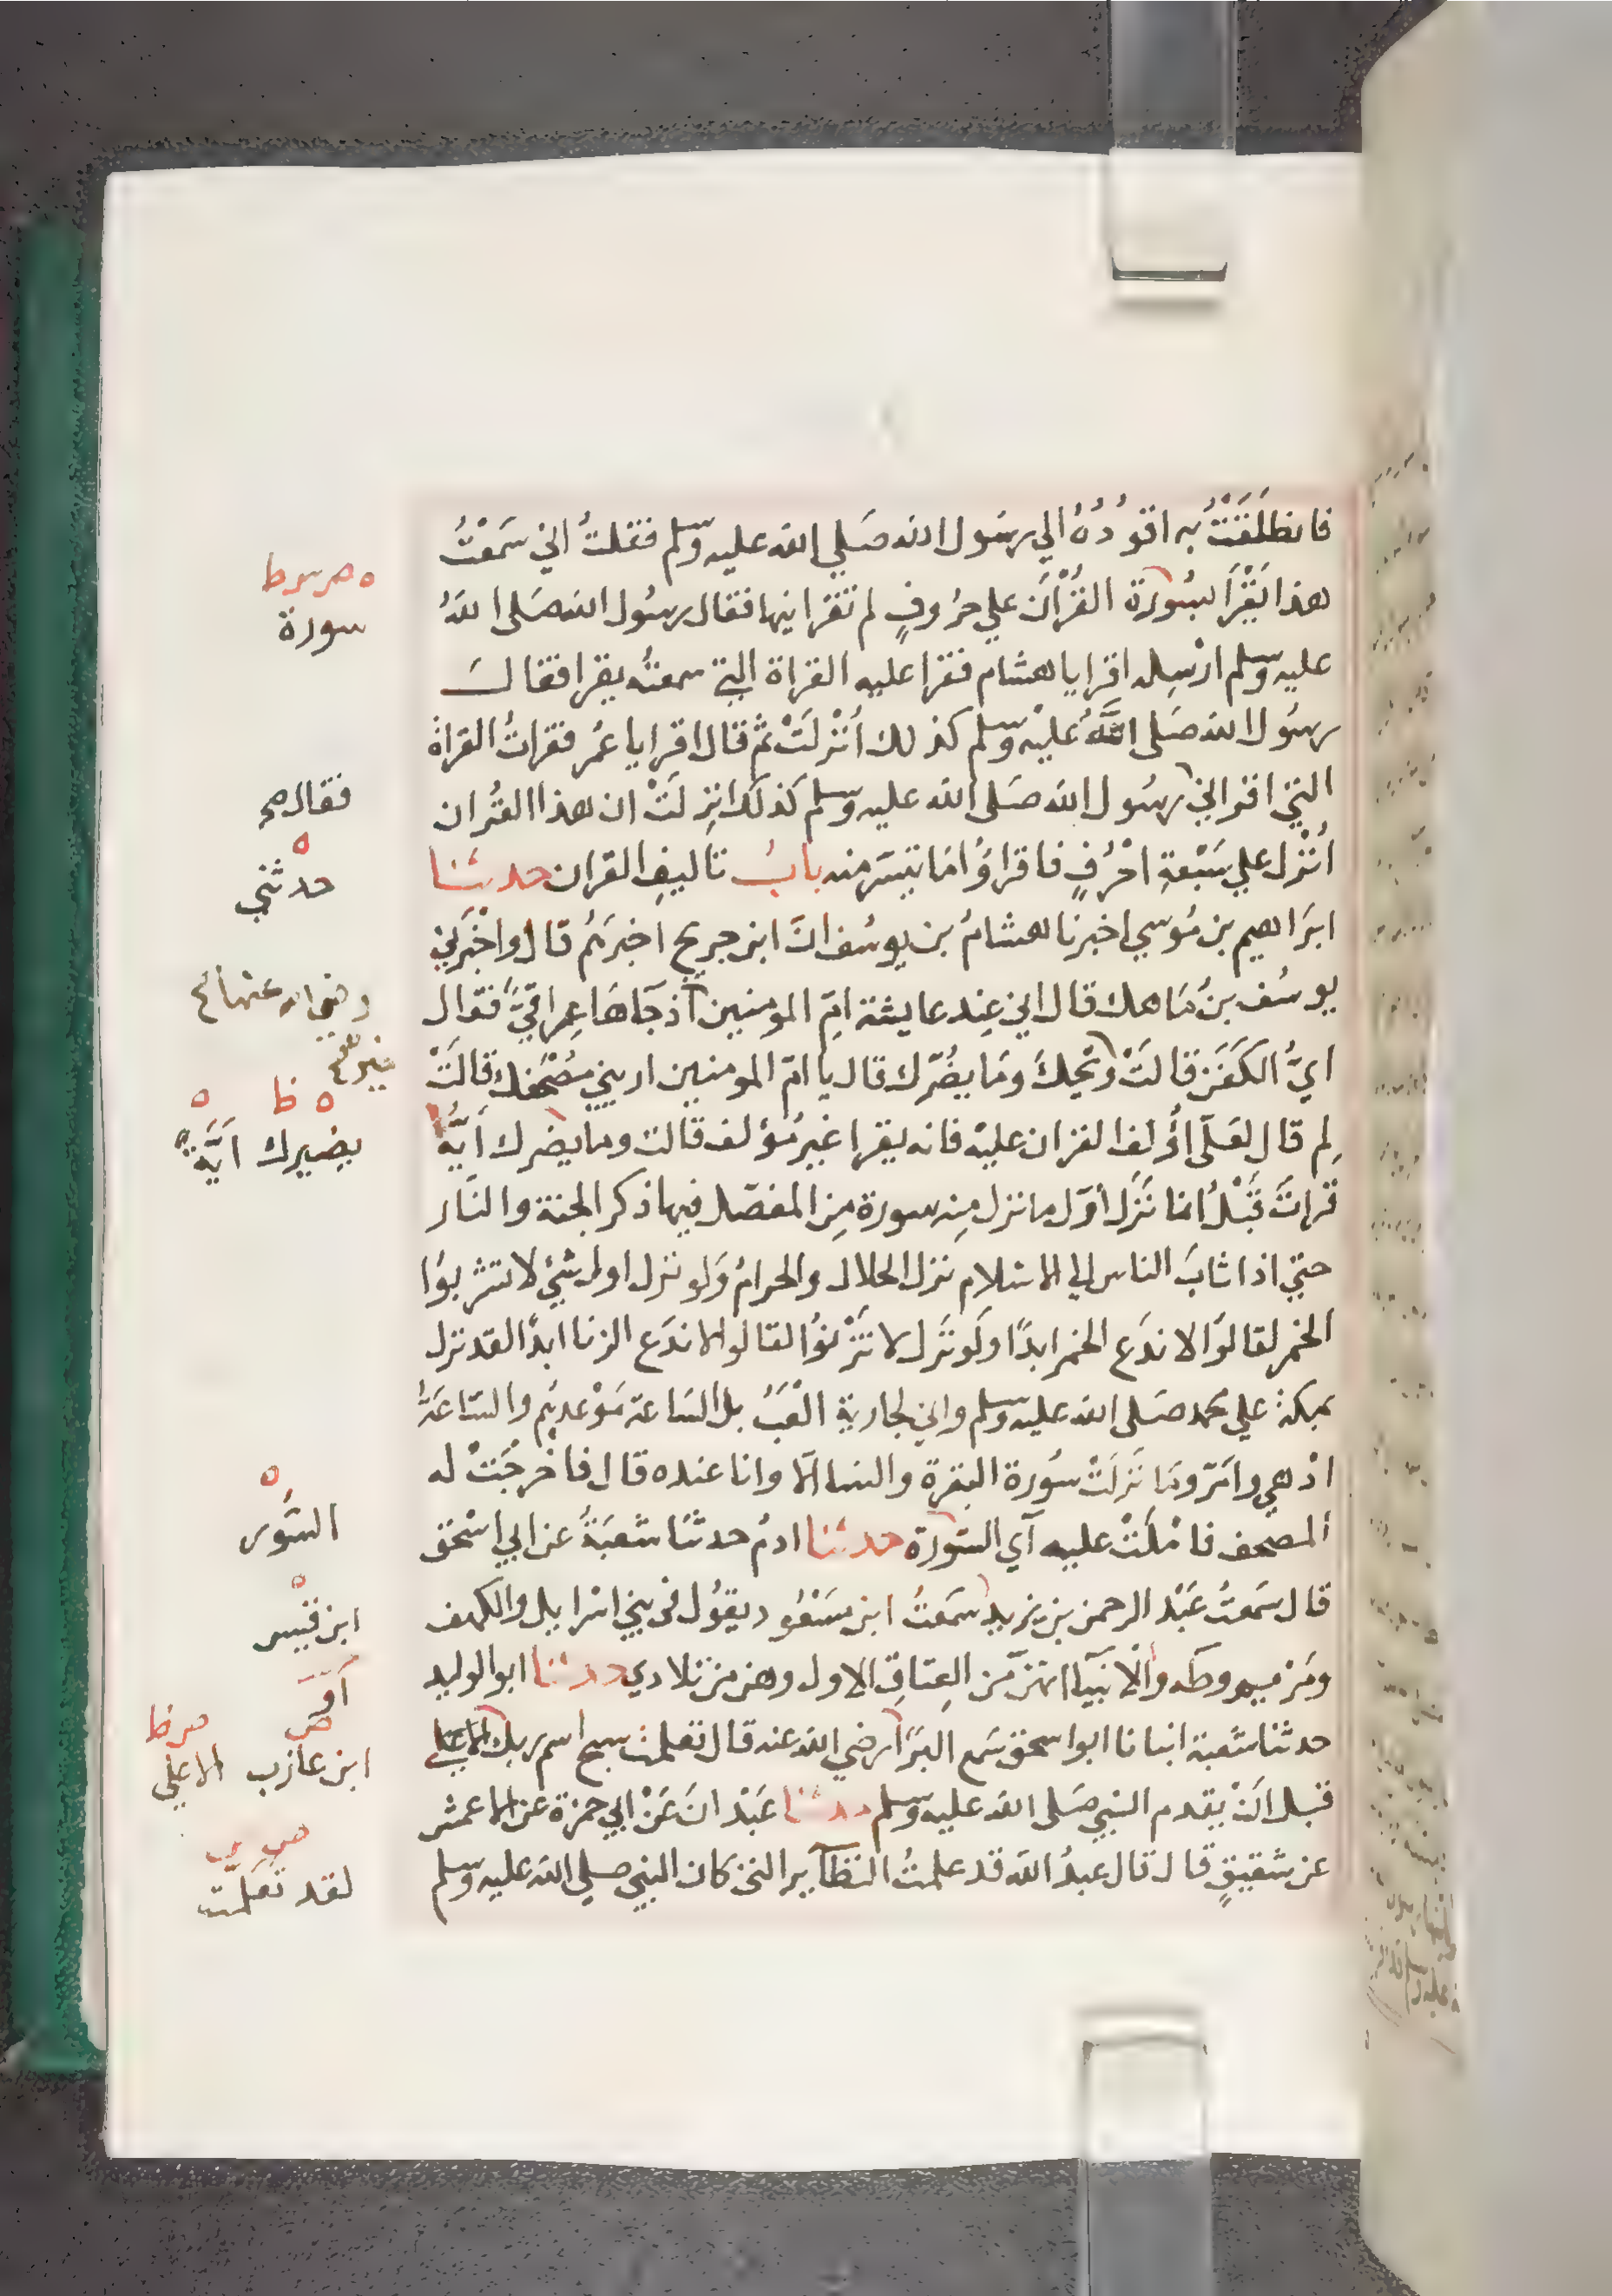 فانطلَقْتُ به اقودُهُ الي رسُول الله صَلي الله عليه وسلم فقلتُ اني سَمعْتُ
هذا يَقْرَأ بسُورة القُرْآن علي حرُوفٍ لم تقرانيها فقال رسُول الله صَلى اللهُ
عليه وسلم ارْسِله اقرا يا هشام فقرا عليه القراة التي سمعتُه يقرا فقال
رسُول الله صَلى اللَّهُ عليْه وسلم كذلك أُنْزلَتْ ثم قال اقرا يا عُمر فقراتُ القراة
التي اقراني رسُول الله صَلى الله عليه وسلم كذلك انزِلَتْ ان هذا القُران
أُنْزل علي سَبْعةِ احْرُفٍ فاقراوُا مَا تيسَر منه بابُ تاليفِ القران حدثنا
ابرَاهيم بن مُوسي اخبرنا هشامُ بن يوسُف انَّ ابن جريج اخبرَهُم قال واخْبَرَني
يوسُف بنُ مَاهك قال اني عِند عايشة امّ المومنين اذ جَاهَا عِراقيٌّ فقال
ايُّ الكَفَن قالَتْ ويْحَكَ ومَا يضُرّك قال يا امّ المومنين اريني مصْحَفك قالَتْ
لِم قال لعَلّي أُؤلف القران عليْه فانه يقرا غيرَ مُؤلف قالت وما يضرك ايَّهُ
قراتَ قبْلُ انما نَزَل أوّل ما نزل مِنه سورة مِن المفصّل فيها ذكر الجنة والنَار
حتي اذا ثابَ الناس الي الاسْلام نزل الحلال والحرامُ وَلو نزل اول شيْ لا تشربوُا
الخمر لقالوُا لا ندَع الخمر ابدًا ولَو نزَل لا تَزْنوُا لقالوا لا ندَع الزنا ابدًا لقد نزل
بمكة علي محمد صَلى الله عليه وسلم واني لجارية الْعَبُ بل السَاعة مَوْعدهُم والسّاعَةُ
ادْهي وامَرّ ومَا نَزلَتْ سُورة البقرة والنسا الّا وانا عنده قال فاخْرجَتْ له
المصحف فامْلَتْ عليه آي السّورة حدثنا ادمُ حدثنا شعبَةُ عن ابي اسْحق
قال سَمعتُ عَبْد الرحمن بن يزيد سَمعتُ ابن مسْعُود يقوُل في بني اسْرايل والكهف
ومَرْيم وطه والانبَيآ انهنّ من العِتاقِ الاول وهن من تلادي حدثنا ابو الوليد
حدثنا شعبة انبانا ابو اسحق سَمع البَرَآ رضي الله عنه قال تعلمت سبح اسم ربك الاعلي
قبل انْ يقدم النبي صَلى الله عليه وسلم حدثنا عَبْدانَ عَنْ ابي حمزة عن الاعمش
عن شقيقٍ قال قال عبدُ الله قد علمتُ النظآير التي كان النبي صلي الله عليه وسلم
سورة
فقال صح
حدثني
رضي الله عنها
يضيرك ايَّة
السُّور
ابن قيس
ابن عازب الاعلي
لقد تعلّمت